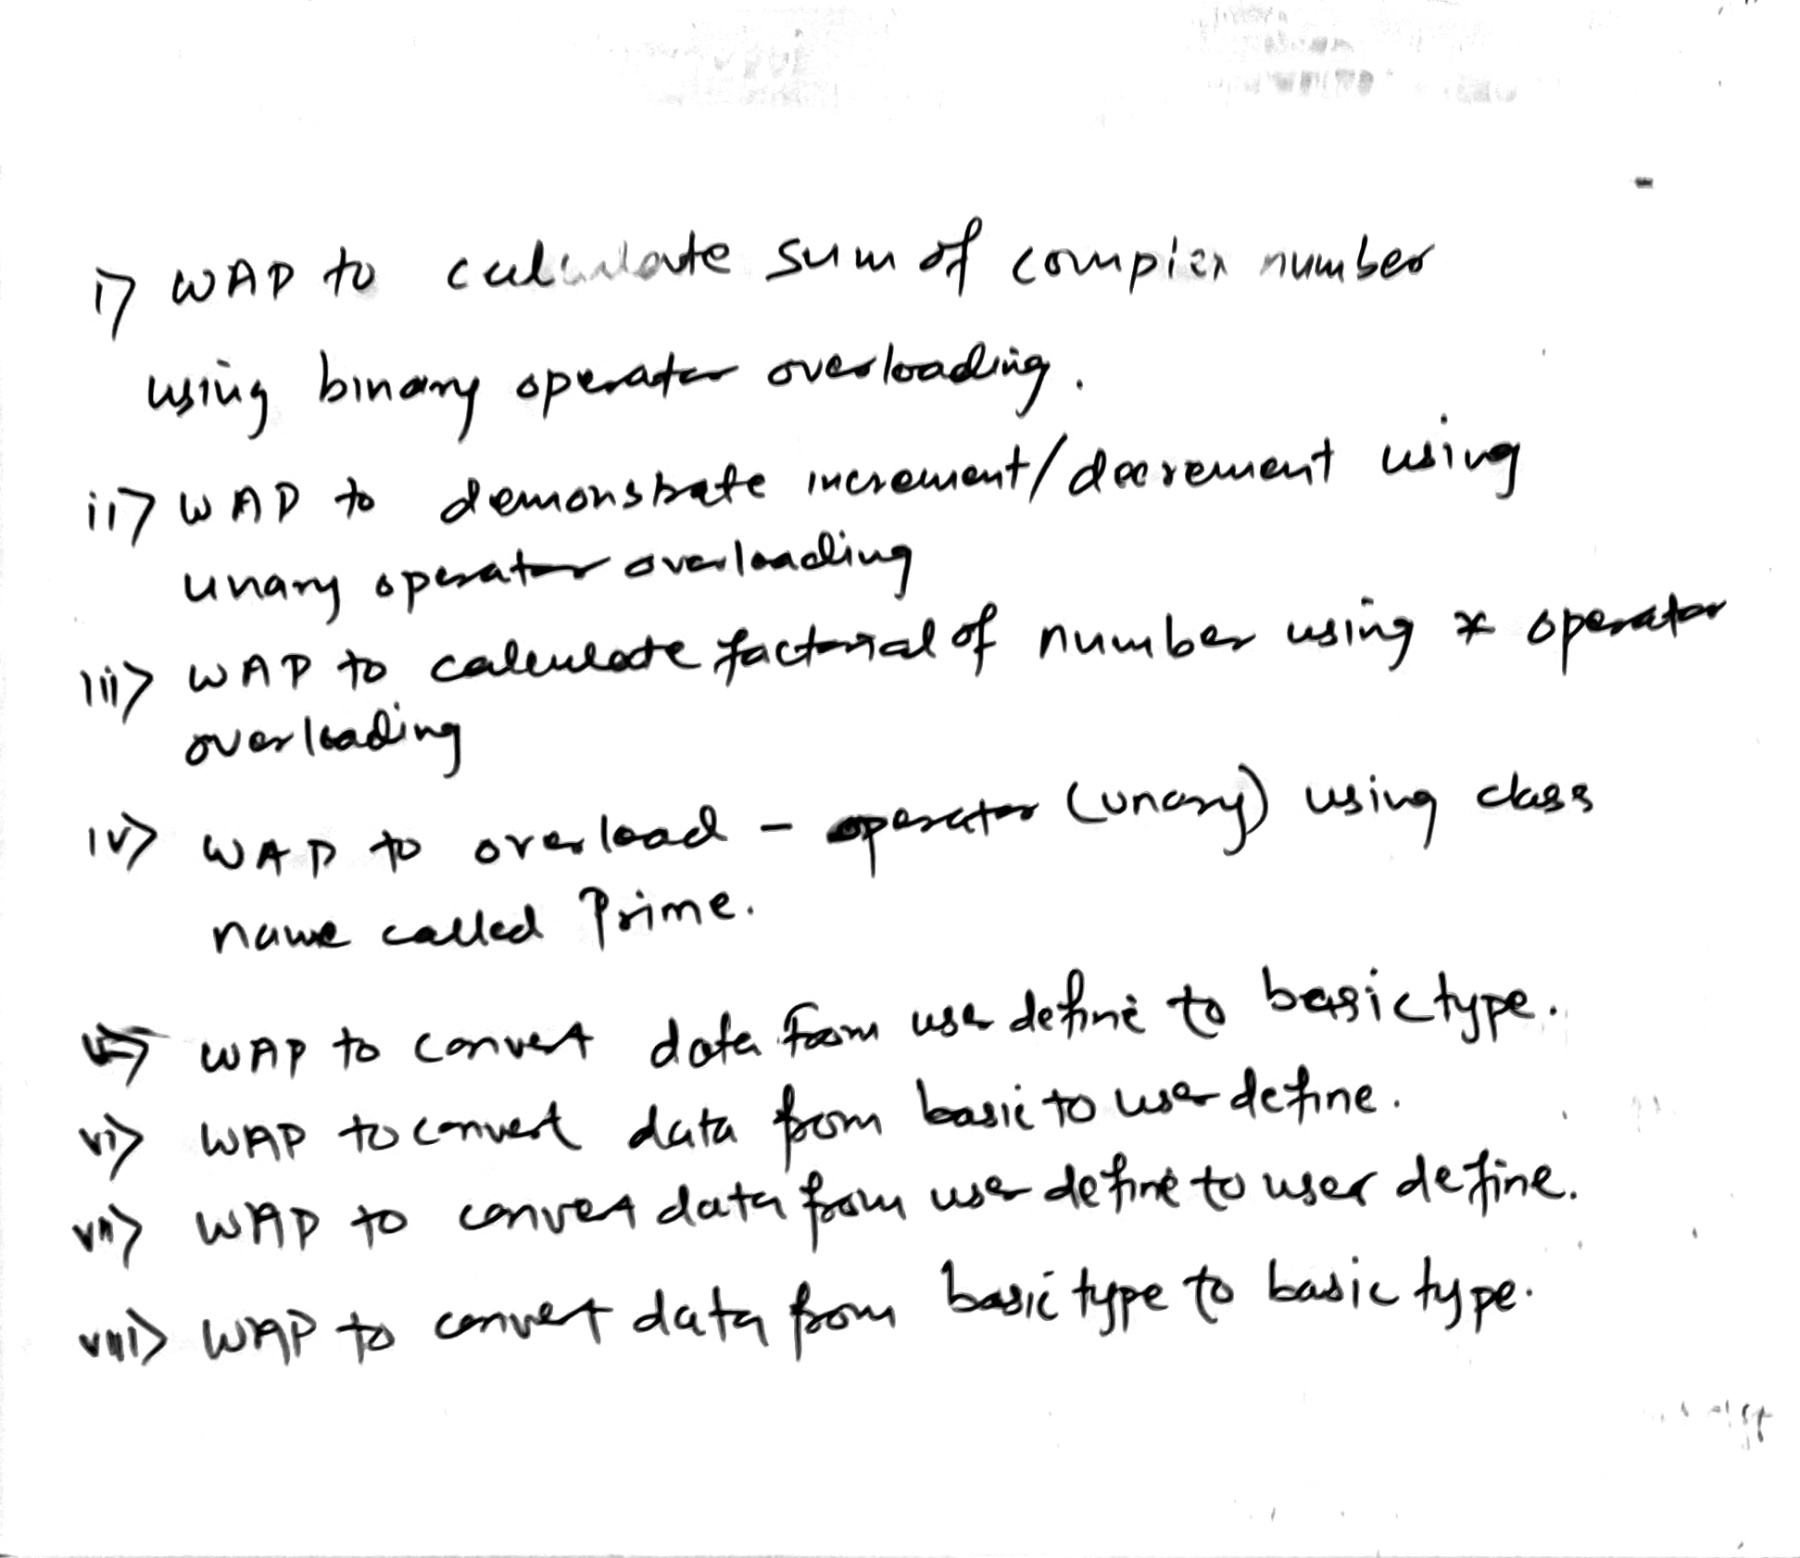 i> WAP to calculate sum of complex number
using binary operator overloading.
ii> WAP to demonstrate increment/decrement using
unary operator overloading
iii> WAP to calculate factorial of number using * operator
overloading
iv> WAP to overload - operator (unary) using class
name called Prime.
v> WAP to convert data from use define to basic type.
vi> WAP to convert data from basic to user define.
vii> WAP to convert data from user define to user define.
viii> WAP to convert data from basic type to basic type.